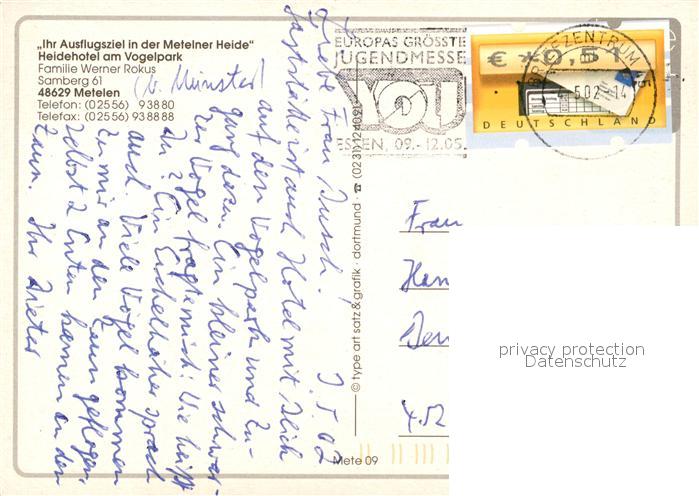 „Ihr Ausflugsziel in der Metelner Heide"
Heidehotel am Vogelpark
Familie Werner Rokus
Samberg 61
48629 Metelen
(b. Münster)
Telefon: (02556) 93880
Telefax: (02556) 938888
EUROPAS GRÖSSTE
JUGENDMESSE
YOU
ESSEN, 09.-12.05.
BRIEFZENTRUM
€ *0,51
DEUTSCHLAND
2.5.02
Liebe Frau
Gaststätte ist auch Hotel mit Blick
auf den Vogelpark und Zu-
gang dazu. Ein kleiner schwar-
zer Vogel fragte mich: Wie heißt
Du? Ein Eichelhäher sprach
auch. Viele Vögel kommen
zu mir an den Zaun geflogen,
selbst 2 Enten kamen an den
Zaun. Ihr Dieter
© type art satz & grafik · dortmund · ☎ (0231) 124091
Frau
452
privacy protection
Datenschutz
Mete 09